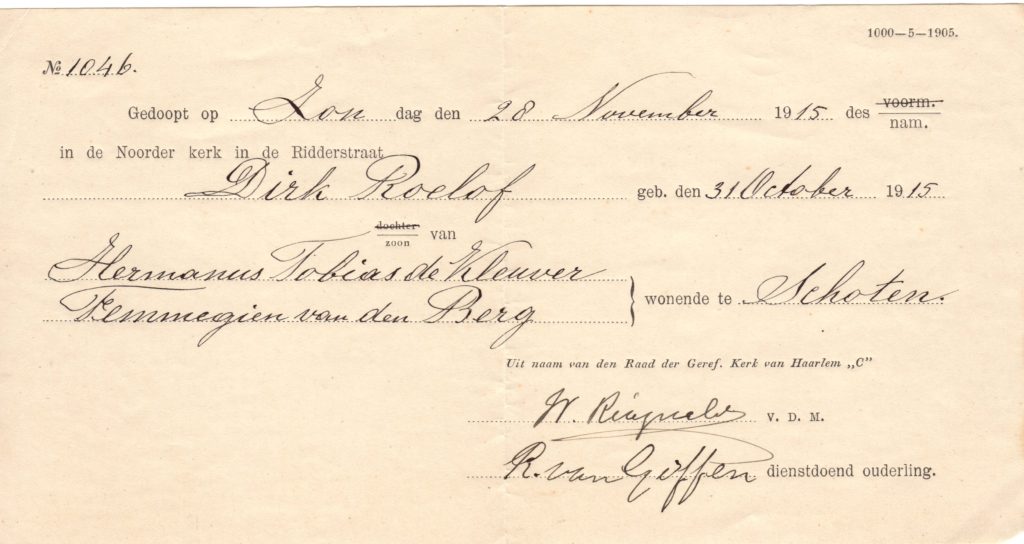 1000—5—1905.
№ 1046.
Gedoopt op Zon dag den 28 November 1915 des voorm.
nam.
in de Noorder kerk in de Ridderstraat
Dirk Roelof geb. den 31 October 1915
dochter
zoon van
Hermanus Tobias de Kleuver
Femmegien van den Berg } wonende te Schoten.
Uit naam van den Raad der Geref. Kerk van Haarlem „C”
W. Ringnalda V. D. M.
R. van Giffen dienstdoend ouderling.